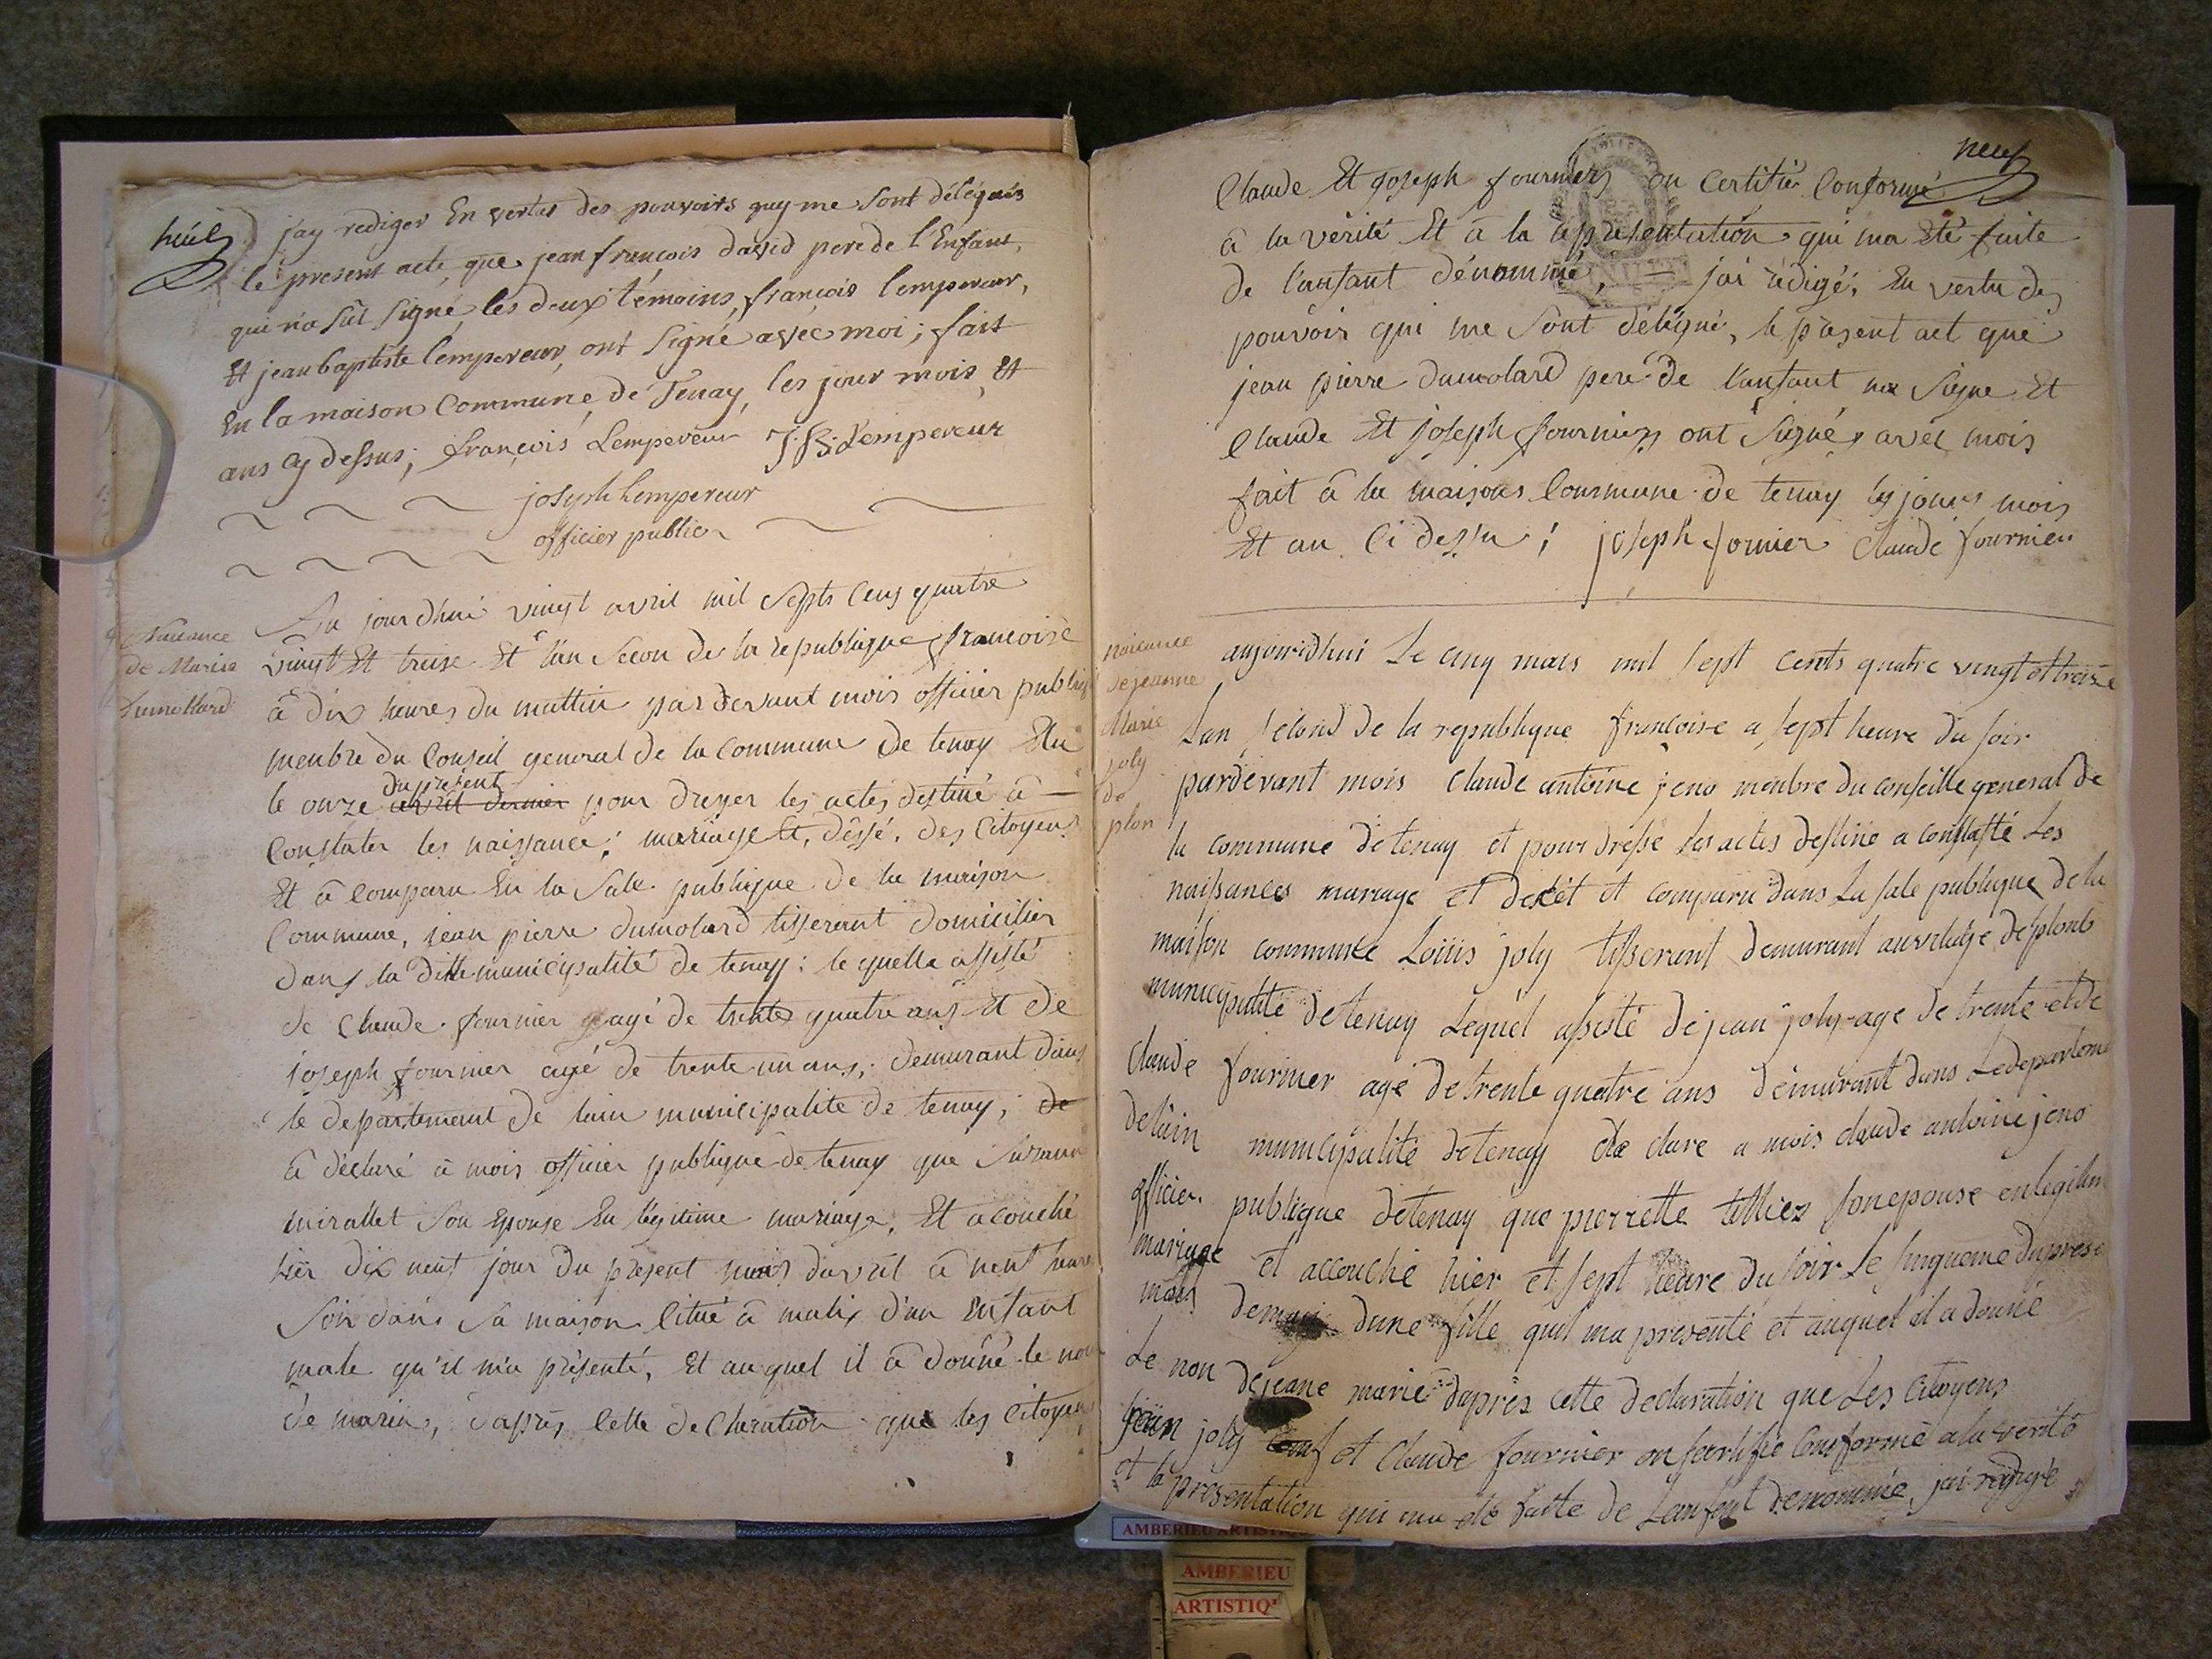 huit
j'ay rediger En vertus des pouvoirs quy me sont délégués
le present acte, que jean françois david pere de l'Enfant,
qui n'a sût signé, les deux témoins, françois lempereur,
Et jean baptiste lempereur, ont signé avec moi; fait
En la maison Commune, de Tenay, les jour mois, Et
ans cy dessus; françois Lempereur J.B. Lempereur
joseph lempereur
officier public
Naissance
de Marin
Dumollard
Au jourdhui vingt avril mil septs cens quatre
vingt Et treise Et l'an secon de la republique francoise
â dix heures du mattin par devant mois officier publiq
menbre du Conseil general de la Commune de tenay Elu
du présent
le onze avril dernier pour dresser les actes destiné â
Constater les naissance; mariage et, déssé, des Citoyens
Et â comparu En la Sale publique de la maison
Commune, jean pierre dumolard tisserant domicilier
dans la ditte municipalité de tenay: le quelle assisté
de Claude fournier agé de trente quatre ans Et de
joseph fournier agé de trente un ans, demurant dans
le departement de lain municipalite de tenay; de
â déclaré â mois officier publique de tenay que Susanne
mirallet son Epouse En légitime mariage, Et acouché
hier dix neuf jour du présent mois davril â neuf heure
soir dans sa maison citué â malix d'un Enfant
male qu'il m'a présenté, Et au quel il â donné le nom
de marin, d'aprés cette declaration que les citoyens
neuf
Claude Et joseph fournier on certifié Conforme
â la vérité Et â la représentation qui ma Eté faite
de l'anfant dénommé, jai rédigé, En vertu des
pouvoir qui me sont délégué, le présent act que
jean pierre dumolard pere de l'anfant na signe Et
Claude Et joseph fournier ont signé avec mois
fait â la maison Commune de tenay les jours mois
Et an ci dessu; joseph fournier Claude fournier
naissance
de jeanne
Marie
joly
de
plon
aujourdhui Le cinq mais mil sept cents quatre vingt et treize
Lan second de la republique francoise a sept heure du soir
pardevant mois Claude antoine jeno menbre du conseille general de
la commune de tenay et pour dressé les actes destine a constasté Les
naissances mariage et decét et comparu dans La sale publique de la
maison commune Louis joly tisserant demurant au vilage de plomb
municipalité de tenay Lequel assisté de jean joly age de trente et de
Claude fournier agé de trente quatre ans demurant dans Le departeme
de lain municipalité de tenay de clare a mois claude antoine jeno
officier publique de tenay que pierrette tilliez son epouse en legitim
mariage et accouché hier et sept heure du soir Le sinqueme du prese
mois de mai dune fille quil ma presenté et auquel il a donné
Le non de jeane marie daprés cette declaration que Les Citoyens
jean joly et Claude fournier on sertifié Conforme a la verité
et la presentation qui ma eté faite de Lanfent denommée, jai redigé
AMBERIEU ARTISTIQ
AMBERIEU
ARTISTIQ